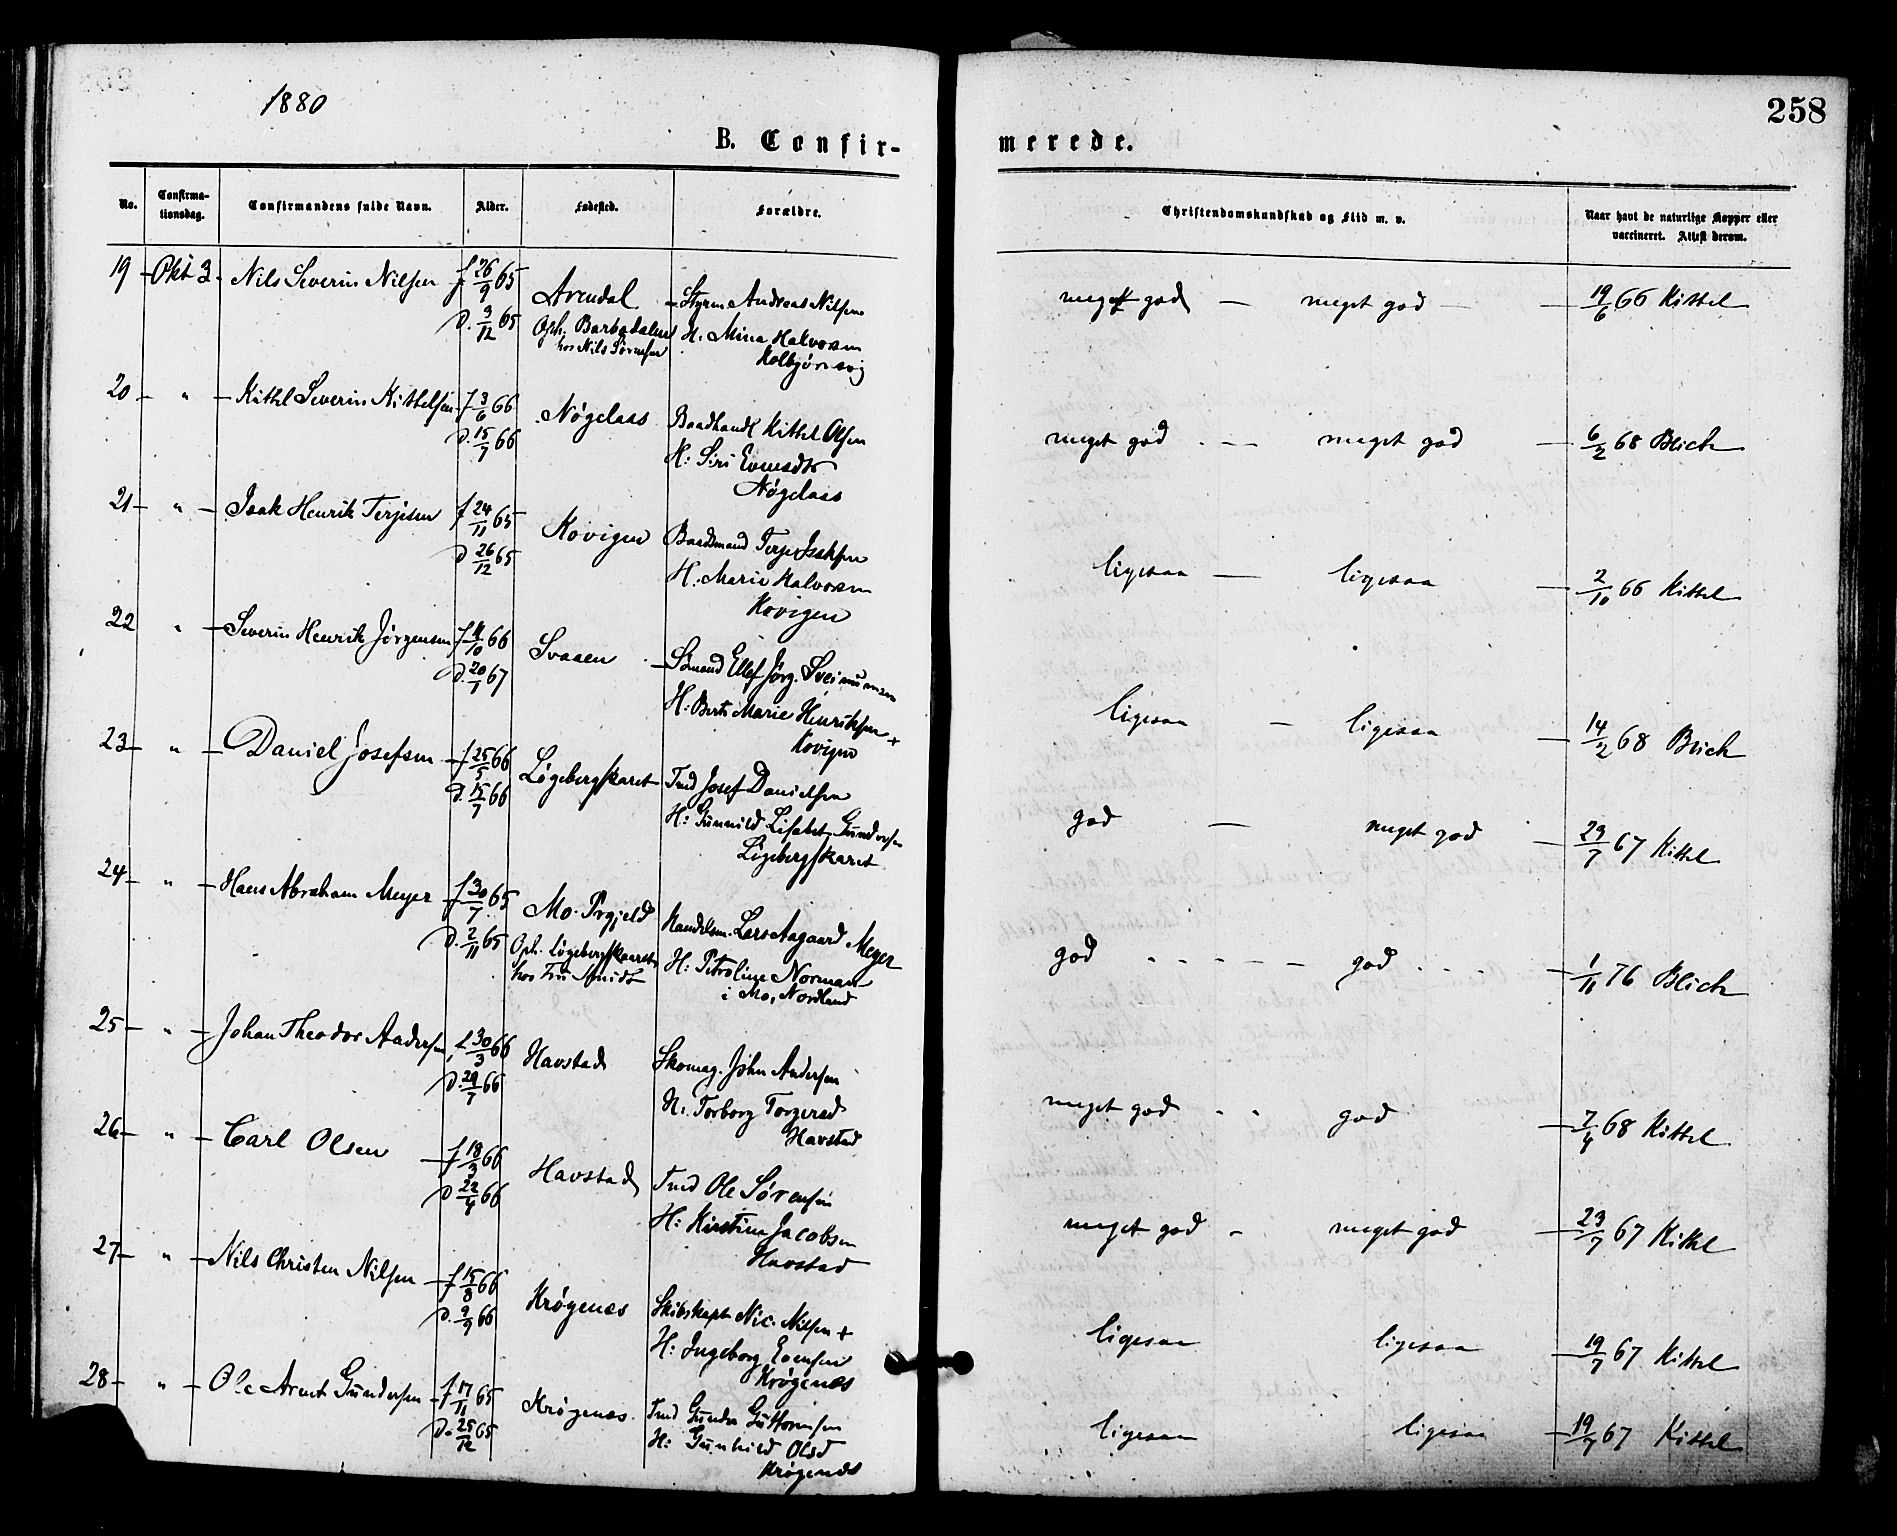 1880
258
B. Confir-
merede.
No.
Confirma-
tionsdag.
Confirmandens fulde Navn.
Alder.
Fødested.
Forældre.
Christendomskundskab og Flid m. v.
Naar havt de naturlige Kopper eller
vaccineret. Attest derom.
19 - Okt 3. Nils Severin Nilsen f 26/9 65 Arendal - Styrm Andreas Nilsen meget god - meget god - 19/6 66 Kittel
d. 3/12 65 Oph. Barbodalen H. Mina Halvorsen
hos Nils Sørensen Kolbjørnsvig
20 - " - Kittel Severin Kittelsen f 3/6 66 Nøgelaas Baadhandl Kittel Olsen meget god - meget god - 6/2 68 Blich
d. 15/7 66 H: Siri Evensdtr
Nøgelaas
21 - " - Isak Henrik Terjesen f 24/11 65 Kovigen Baadsmand Terje Isaksen ligesaa - ligesaa - 2/10 66 Kittel
d 26/12 65 H. Marie Halvorsen
Kovigen
22 " - Severin Henrik Jørgensen f 11/10 66 Svaaen - Sømand Ellef Jørg. ligesaa - ligesaa - 14/2 68 Blich
d. 20/1 67 H. Berte Marie Henriksen +
Kovigen
23 - " - Daniel Josefsen - f 25/5 66 Løgebergskaret Tmd Josef Danielsen god - meget god - 23/7 67 Kittel
d. 15/7 66 H: Gunnild Lisabet Gundersen
Løgebergskaret
24 - " - Hans Abraham Meyer f 30/7 65 Mo. Prgjeld Handelsm. Lars Aagaard Meyer god - - - - - god - - - 1/11 76 Blich
d. 2/11 65 Oph. Løgebergskaaret H: Petroline Norman
hos Fru Smidt i Mo, Nordland
25 - " - Johan Theodor Andersen f 30/3 66 Havstad Skomag. John Andersen meget god - - god - 7/4 68 Kittel
d. 29/7 66 H: Torborg Torgersd
Havstad
26 - " - Carl Olsen - f 18/3 66 Havstad Tmd Ole Sørensen meget god - meget god - 23/7 67 Kittel
d 22/4 66 H: Kirstine Jacobsen
Havstad
27 - " - Nils Christen Nilsen - f 15/8 66 Krøgenes Skibskapt Nic. Nilsen + ligesaa ligesaa - 19/7 67 Kittel
d. 9/9 66 H: Ingeborg Evensen
Krøgenæs
28 - " - Ole Arent Gundersen f 17/11 65 Krøgenæs. Tmd Gunder Guttormsen ligesaa ligesaa - 19/7 67 Kittel
d. 25/12 65 H: Gunhild Olsd
Krøgenæs